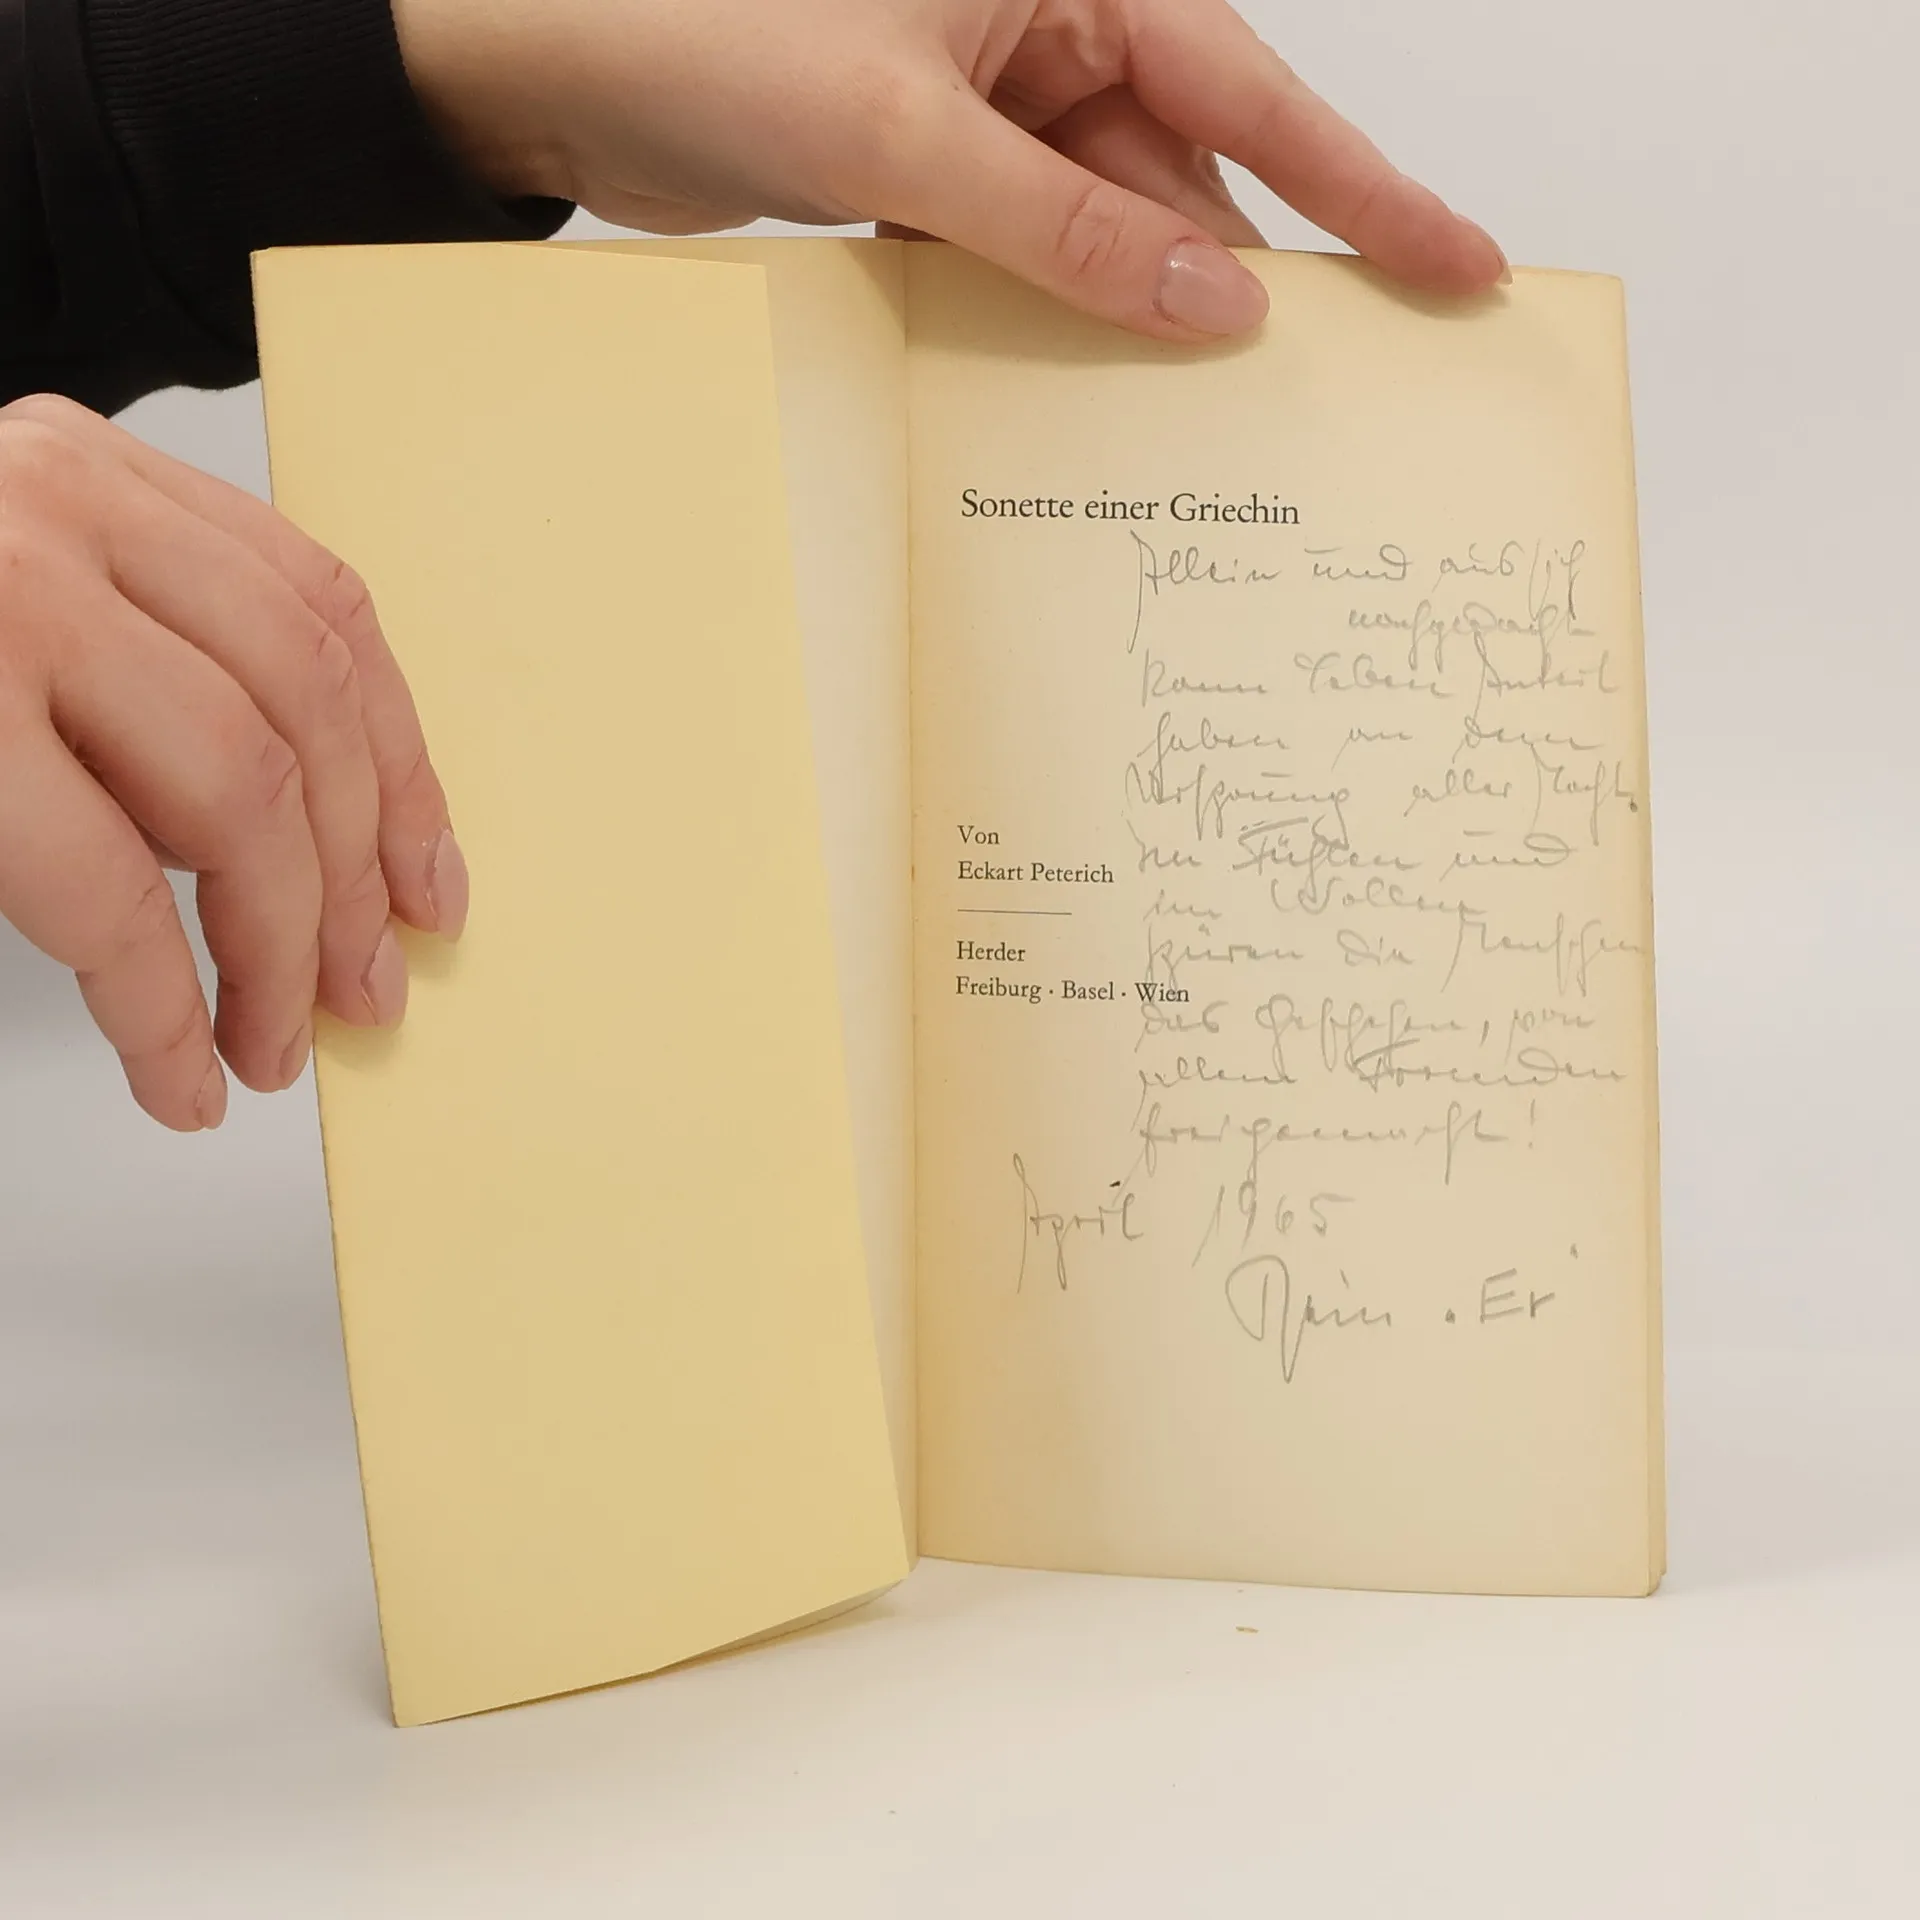 Sonette einer Griechin
Allein und aus sich
nachgedacht
kann Leben Anteil
haben an dem
Ursprung aller Macht.
Im Fühlen und
im Wollen
spüren die Menschen
das Geschehen, von
allem Fremden
freigemacht!
April 1965
Dein "Er"
Von
Eckart Peterich
Herder
Freiburg · Basel · Wien